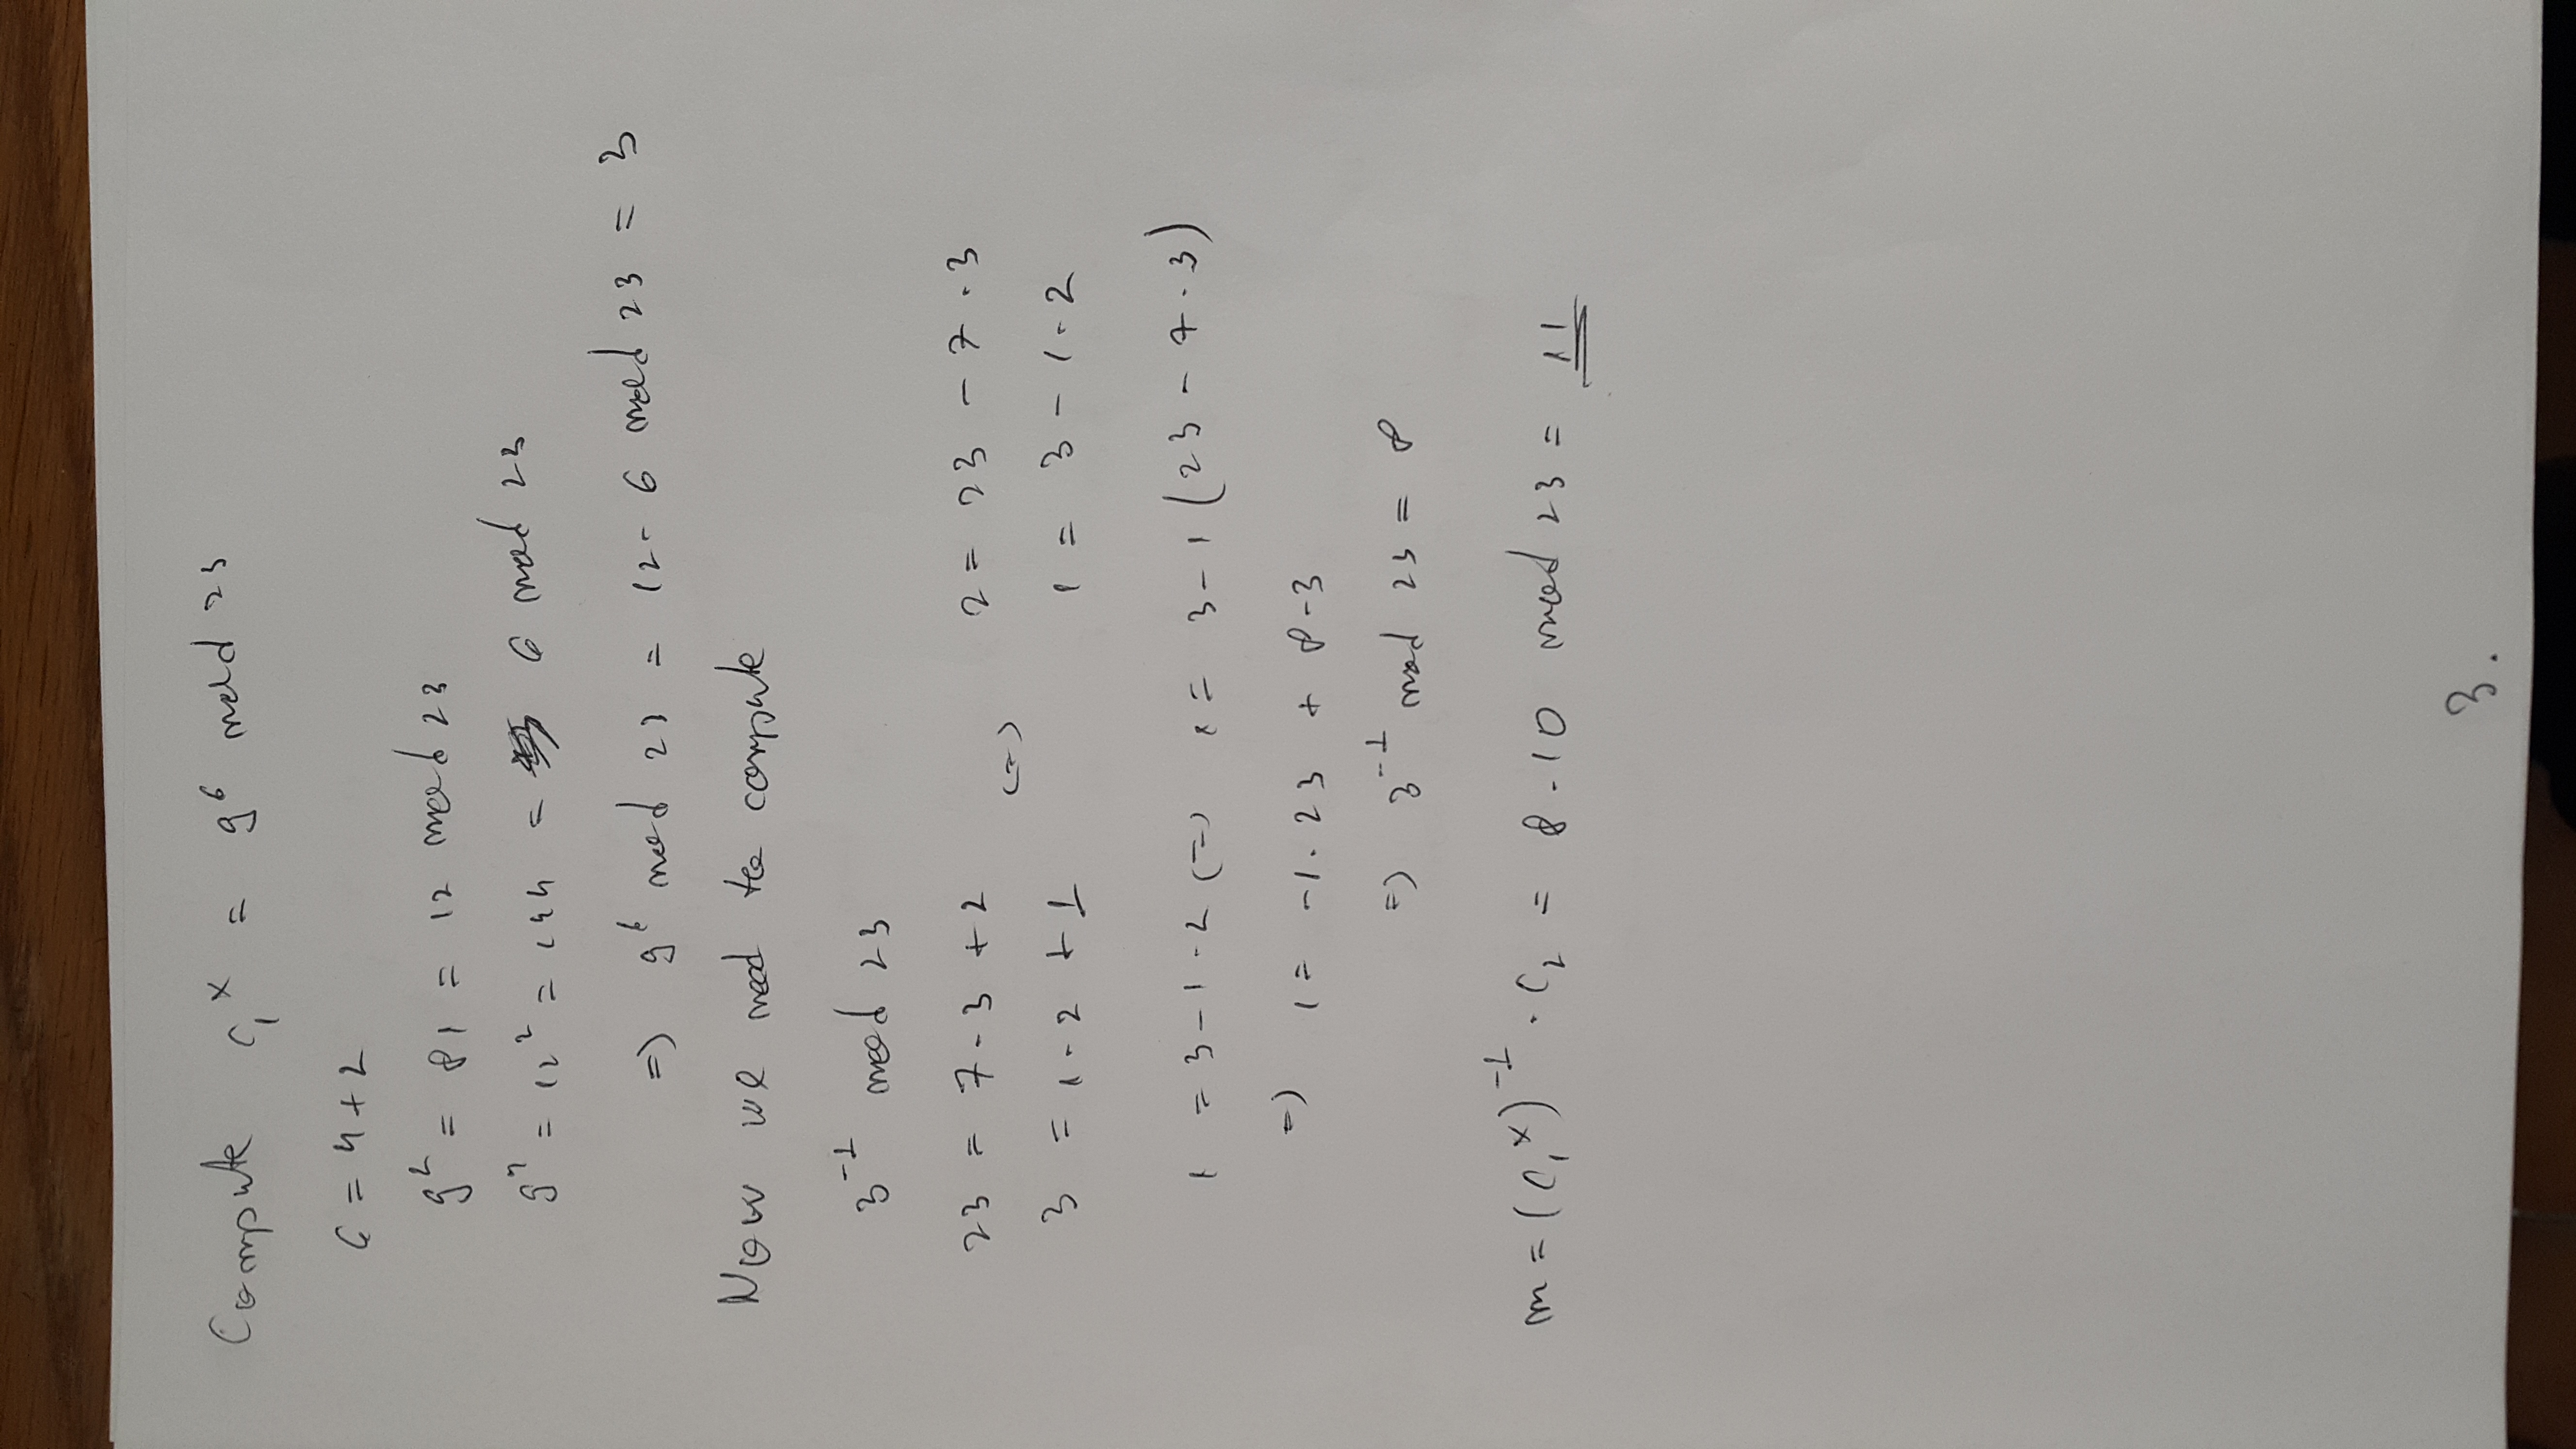 Compute c₁ˣ = 9⁶ mod 23
6 = 4 + 2
9² = 81 = 12 mod 23
9⁴ = 12² = 144 = 6 mod 23
=) 9⁶ mod 23 = 12 · 6 mod 23 = 3
Now we need to compute
3⁻¹ mod 23
23 = 7 · 3 + 2 (=) 2 = 23 - 7 · 3
3 = 1 · 2 + 1 1 = 3 - 1 · 2
1 = 3 - 1 · 2 (=) 1 = 3 - 1 (23 - 7 · 3)
=) 1 = -1 · 23 + 8 · 3
=) 3⁻¹ mod 23 = 8
m = (c₁ˣ)⁻¹ · c₂ = 8 · 10 mod 23 = 11
3.